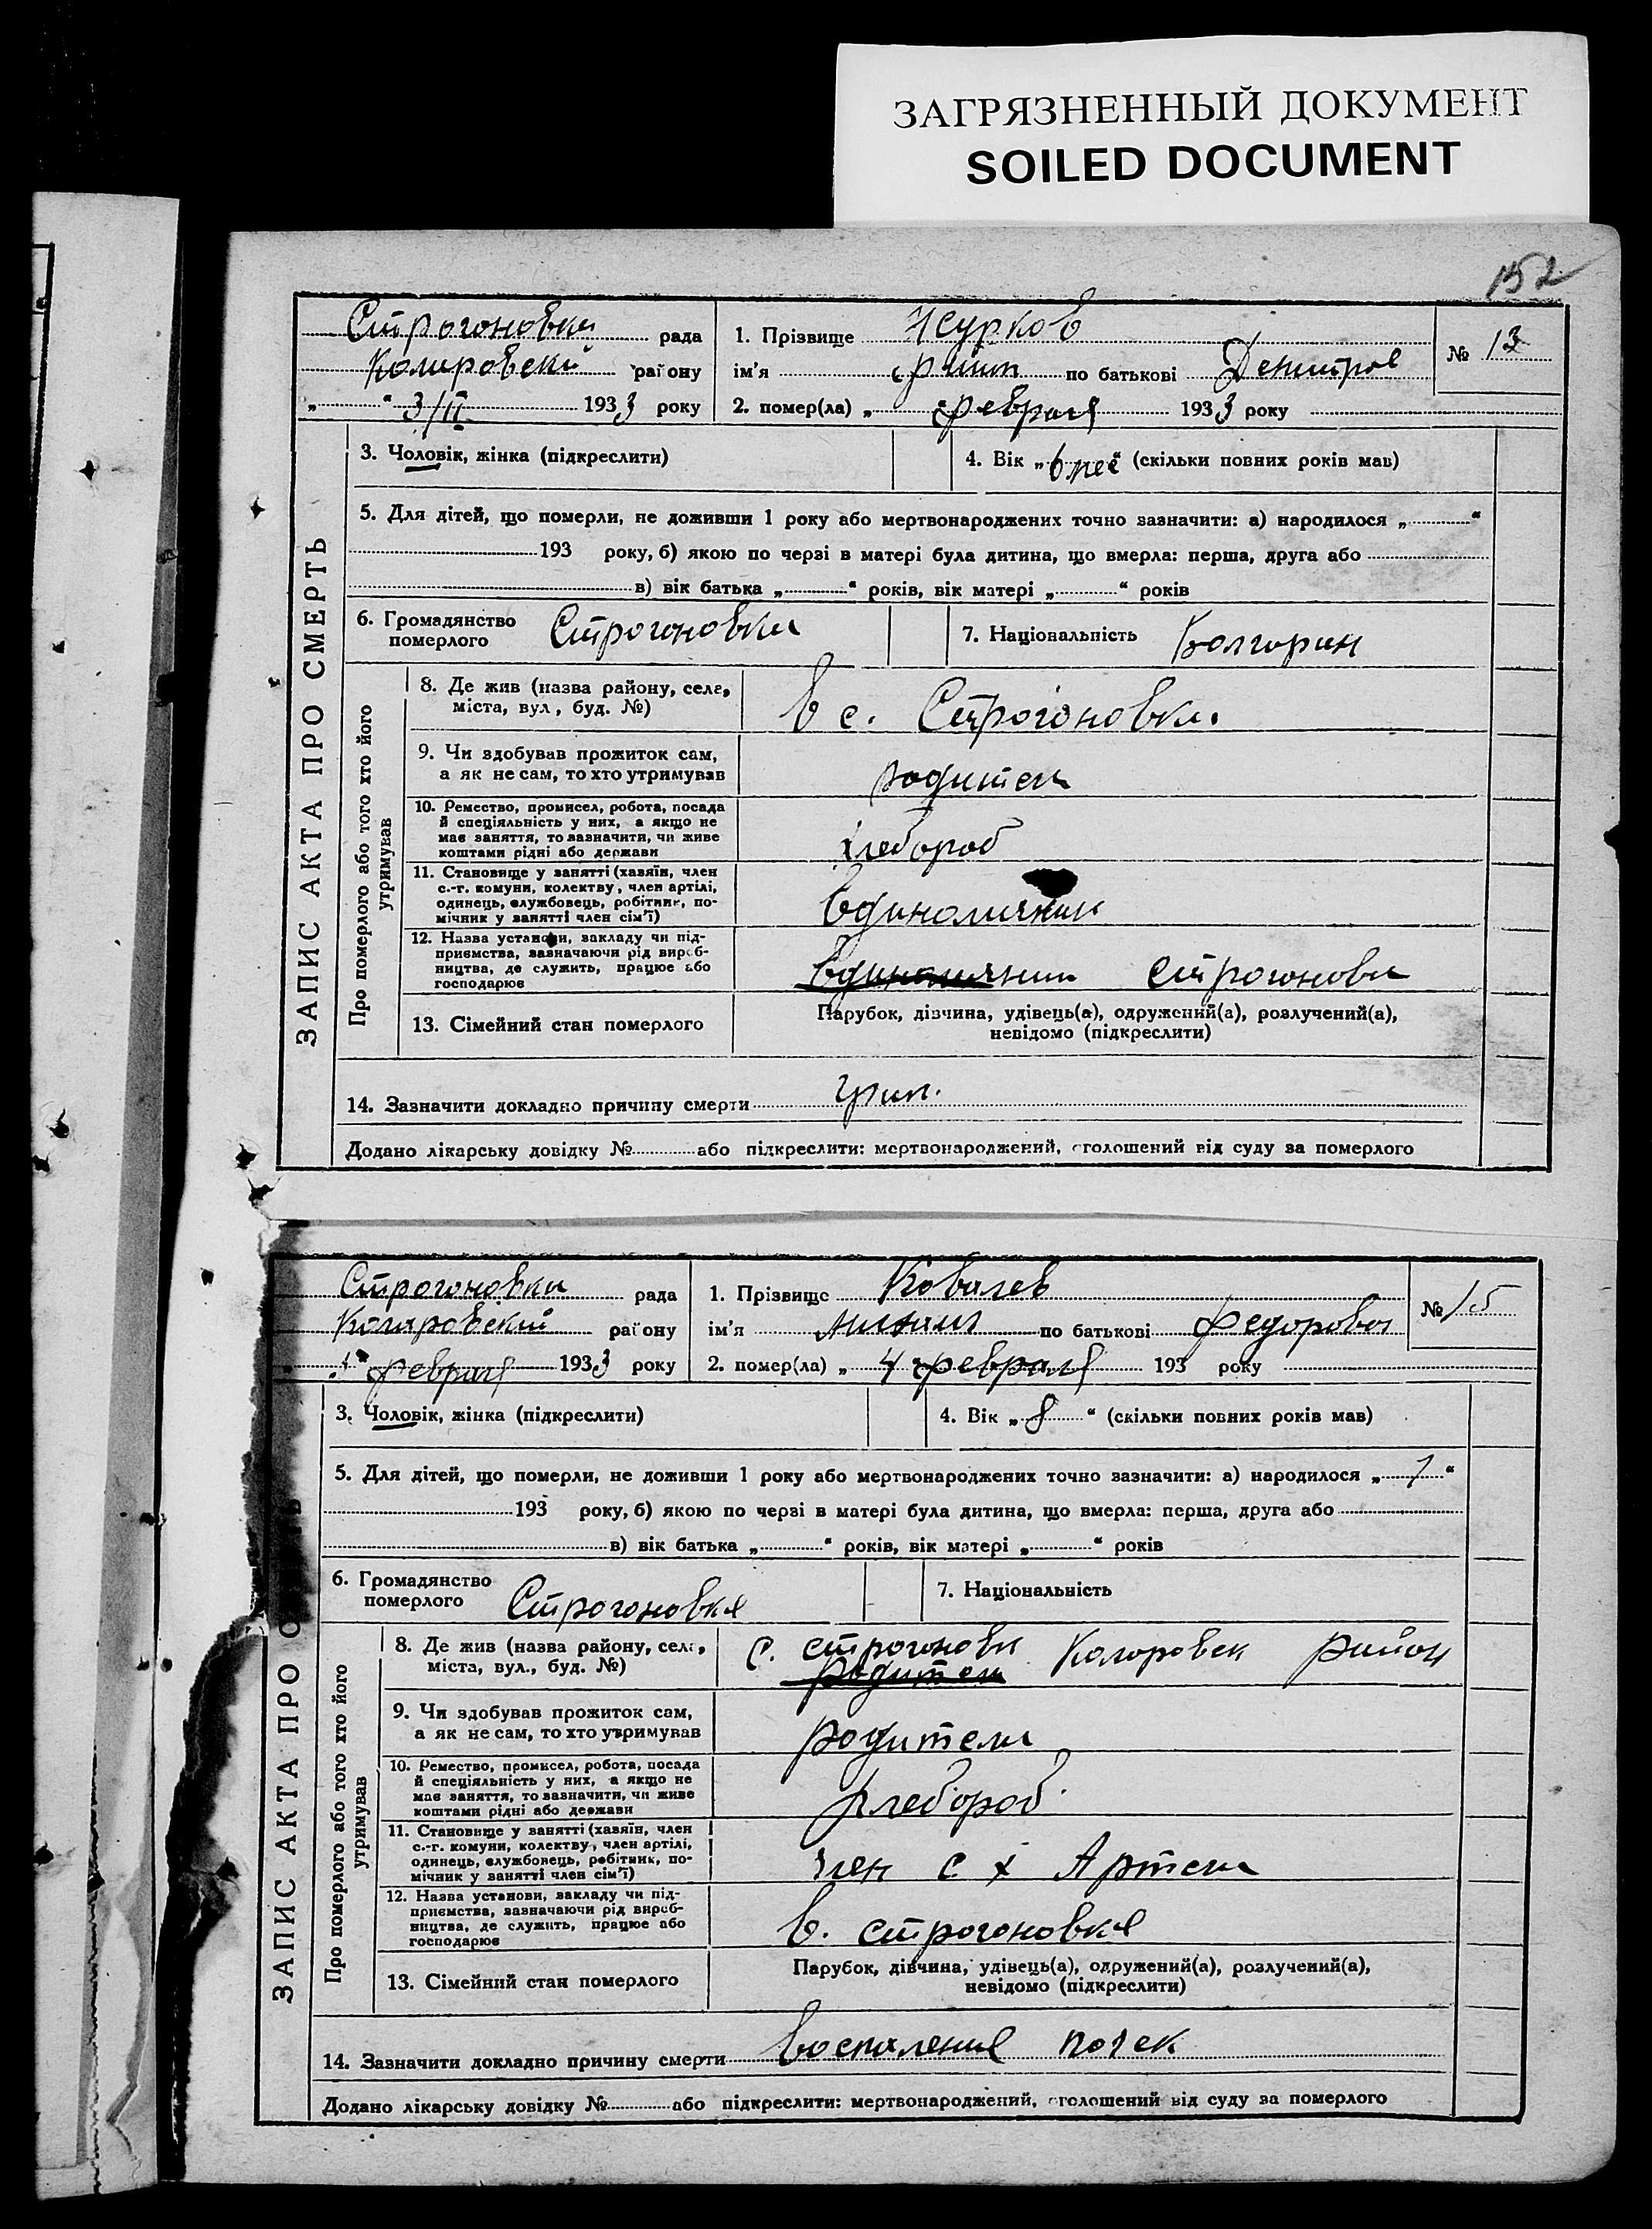 ЗАГРЯЗНЕННЫЙ ДОКУМЕНТ
SOILED DOCUMENT
152
ЗАПИС АКТА ПРО СМЕРТЬ
Строгоновки рада
району
„ “ 3/II 1933 року
1. Прізвище Журков
ім’я по батькові
2. помер(ла) „ февраля 1933 року
№ 13
3. Чоловік, жінка (підкреслити)
4. Вік „ 6 “ (скільки повних років мав)
5. Для дітей, що померли, не доживши 1 року або мертвонароджених точно зазначити: а) народилося „ “
193 року, б) якою по черзі в матері була дитина, що вмерла: перша, друга або
в) вік батька „ “ років, вік матері „ “ років
6. Громадянство
померлого Строгоновки
7. Національність Болгорин
Про померлого або того хто його
утримував
8. Де жив (назва району, села,
міста, вул, буд. №) в с. Строгоновки.
9. Чи здобував прожиток сам,
а як не сам, то хто утримував родители
10. Ремество, промисел, робота, посада
й спеціяльність у них, а якщо не
має заняття, то зазначити, чи живе
коштами рідні або держави хлебороб
11. Становище у занятті (хазяїн, член
с.-г. комуни, колектву, член артілі,
одинець, службовець, робітник, по-
мічник у занятті член сім’ї) Єдиноличник
12. Назва установи, закладу чи під-
приємства, зазначаючи рід вироб-
ництва, де служить, працює або
господарює Єдиноличник строгоновк
13. Сімейний стан померлого
Парубок, дівчина, удівець(а), одружений(а), розлучений(а),
невідомо (підкреслити)
14. Зазначити докладно причину смерти грип.
Додано лікарську довідку № або підкреслити: мертвонароджений, оголошений від суду за померлого
ЗАПИС АКТА ПРО С
Строгоновки рада
Коларовский району
4 февраля 1933 року
1. Прізвище Ковалев
ім’я Михаил по батькові Федорович
2. помер(ла) „ 4 февраля 193 року
№ 15
3. Чоловік, жінка (підкреслити)
4. Вік „ 8 “ (скільки повних років мав)
5. Для дітей, що померли, не доживши 1 року або мертвонароджених точно зазначити: а) народилося „ 1 “
193 року, б) якою по черзі в матері була дитина, що вмерла: перша, друга або
в) вік батька „ “ років, вік матері „ “ років
6. Громадянство
померлого Строгоновкя
7. Національність
Про померлого або того хто його
утримував
8. Де жив (назва району, села,
міста, вул., буд. №) с. строгоновк Колоровск район
родители
9. Чи здобував прожиток сам,
а як не сам, то хто утримував родители
10. Ремество, промисел, робота, посада
й спеціяльність у них, а якщо не
має заняття, то зазначити, чи живе
коштами рідні або держави хлебороб
11. Становище у занятті (хазяїн, член
с.-г. комуни, колектву, член артілі,
одинець, службовець, робітник, по-
мічник у занятті член сім’ї) член с х Артели
12. Назва установи, закладу чи під-
приємства, зазначаючи рід вироб-
ництва, де служить, працює або
господарює в. строгоновкя
13. Сімейний стан померлого
Парубок, дівчина, удівець(а), одружений(а), розлучений(а),
невідомо (підкреслити)
14. Зазначити докладно причину смерти воспаления почек
Додано лікарську довідку № або підкреслити: мертвонароджений, оголошений від суду за померлого